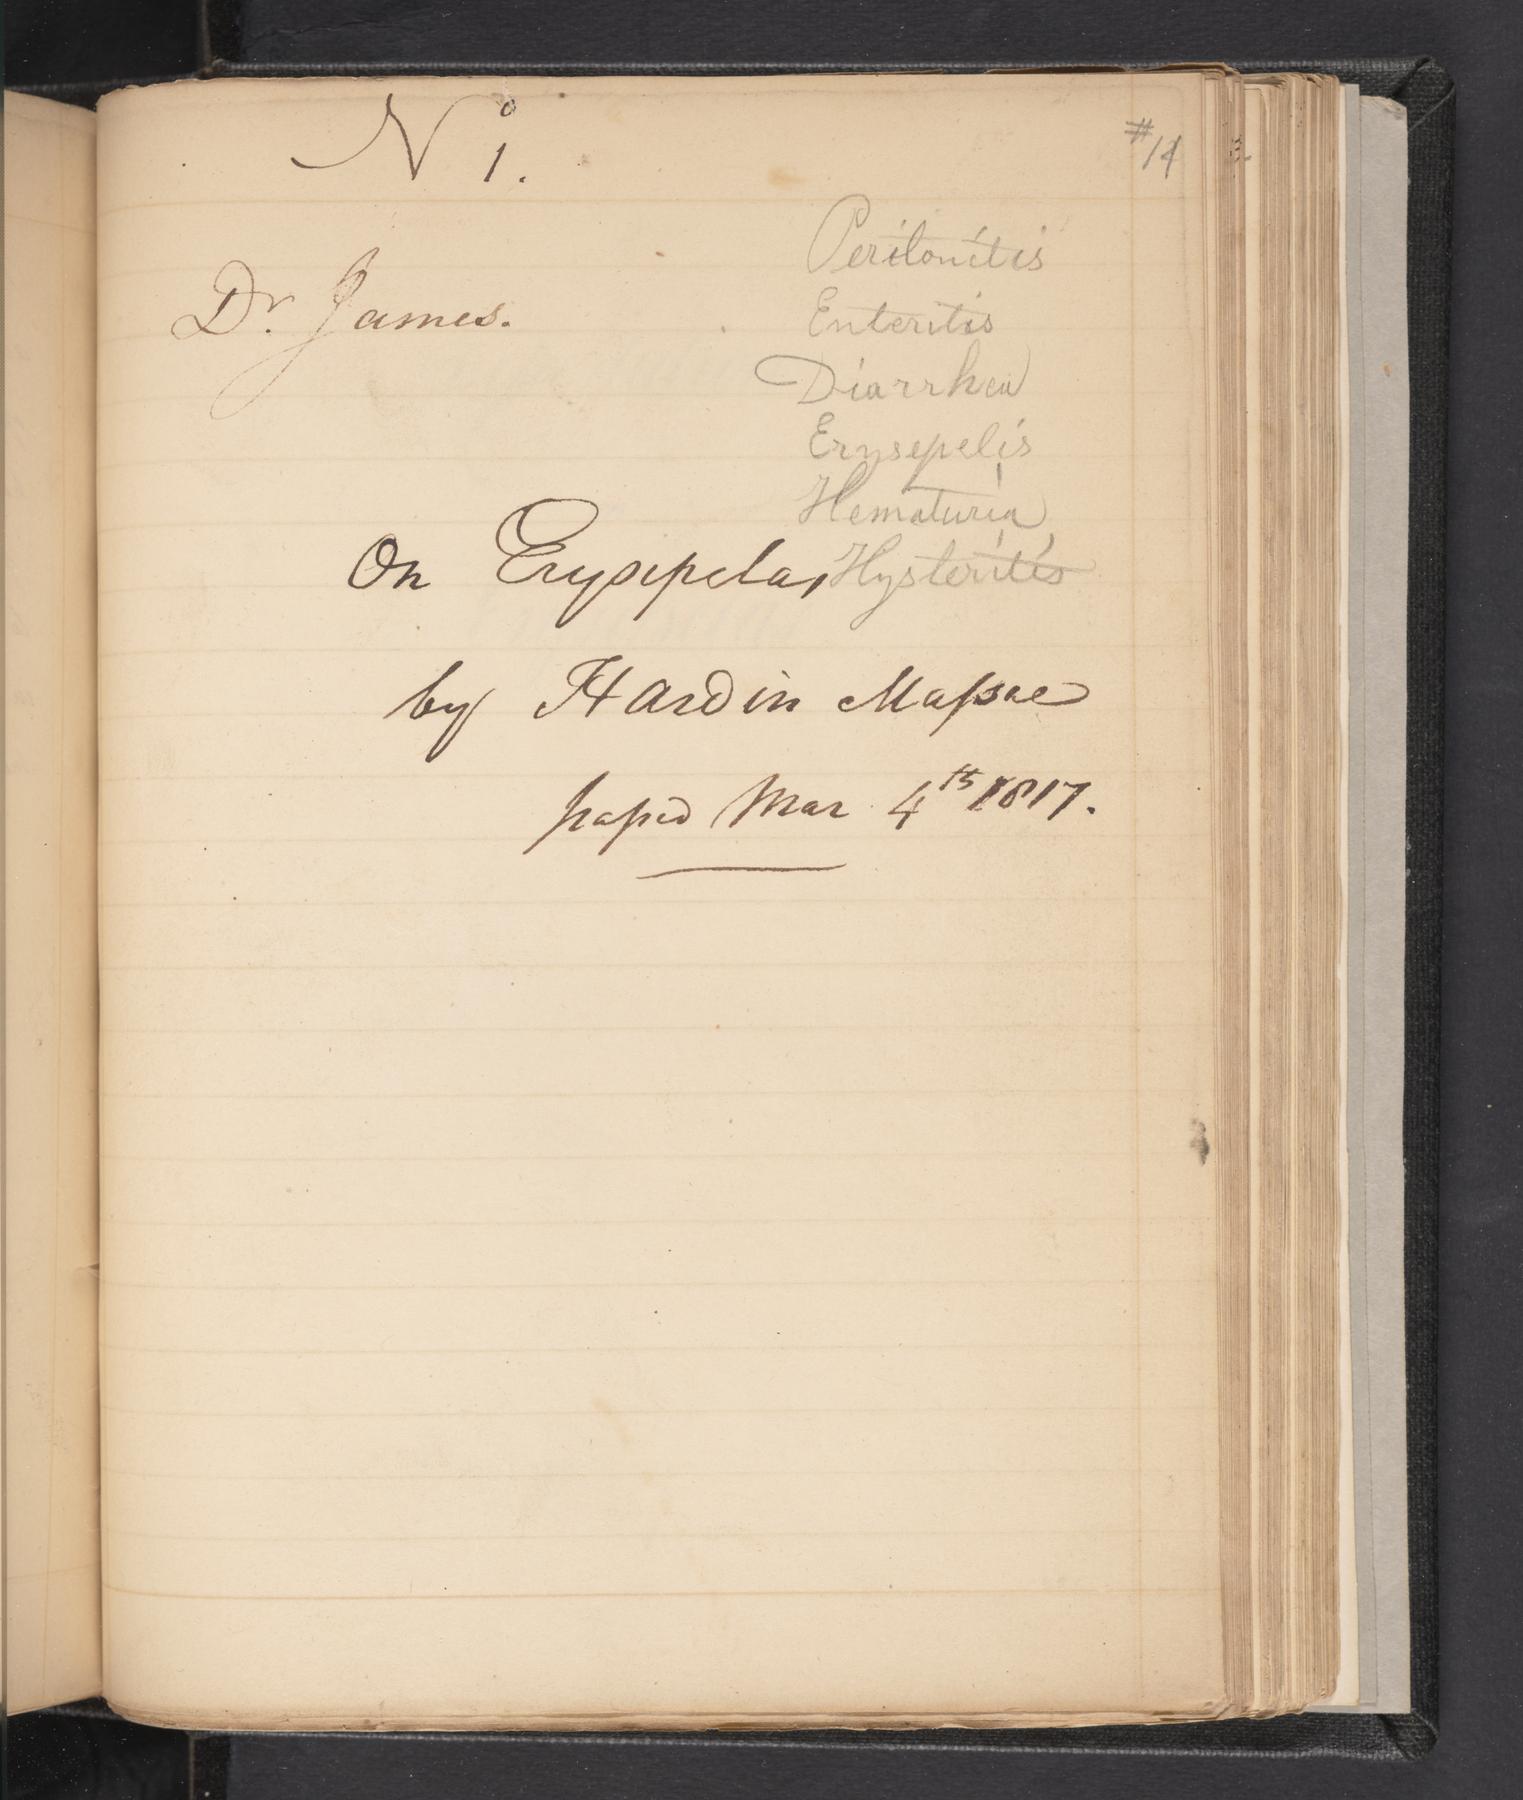 No 1.
#14
Dr. James.
Peritonitis
Enteritis
Diarrhea
Erysepelis
Hematuria
Hysteritis
On Erysepelas
by Hardin Massae
passed Mar 4th 1817.